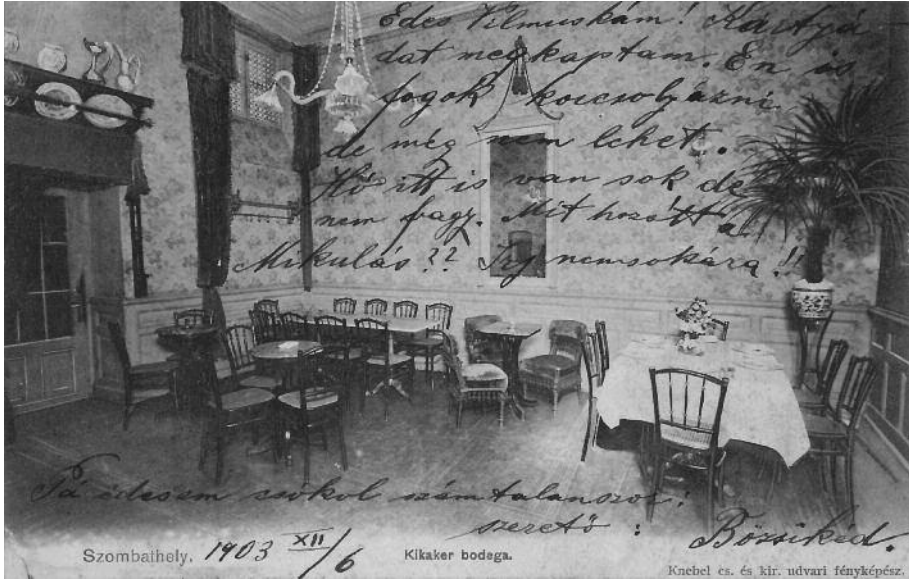 Édes Vilmuskám! Kártyá
dat megkaptam. Én is
fogok korcsolyázni
de még nem lehet.
Hó itt is van sok de
nem fagy. Mit hozott a
Mikulás?? Írj nemsokára!!
Pá édesem csókol számtalanszor:
szerető: Bözsikéd.
Szombathely. 1903 XII/6
Kikaker bodega.
Knebel cs. és kir. udvari fényképész.